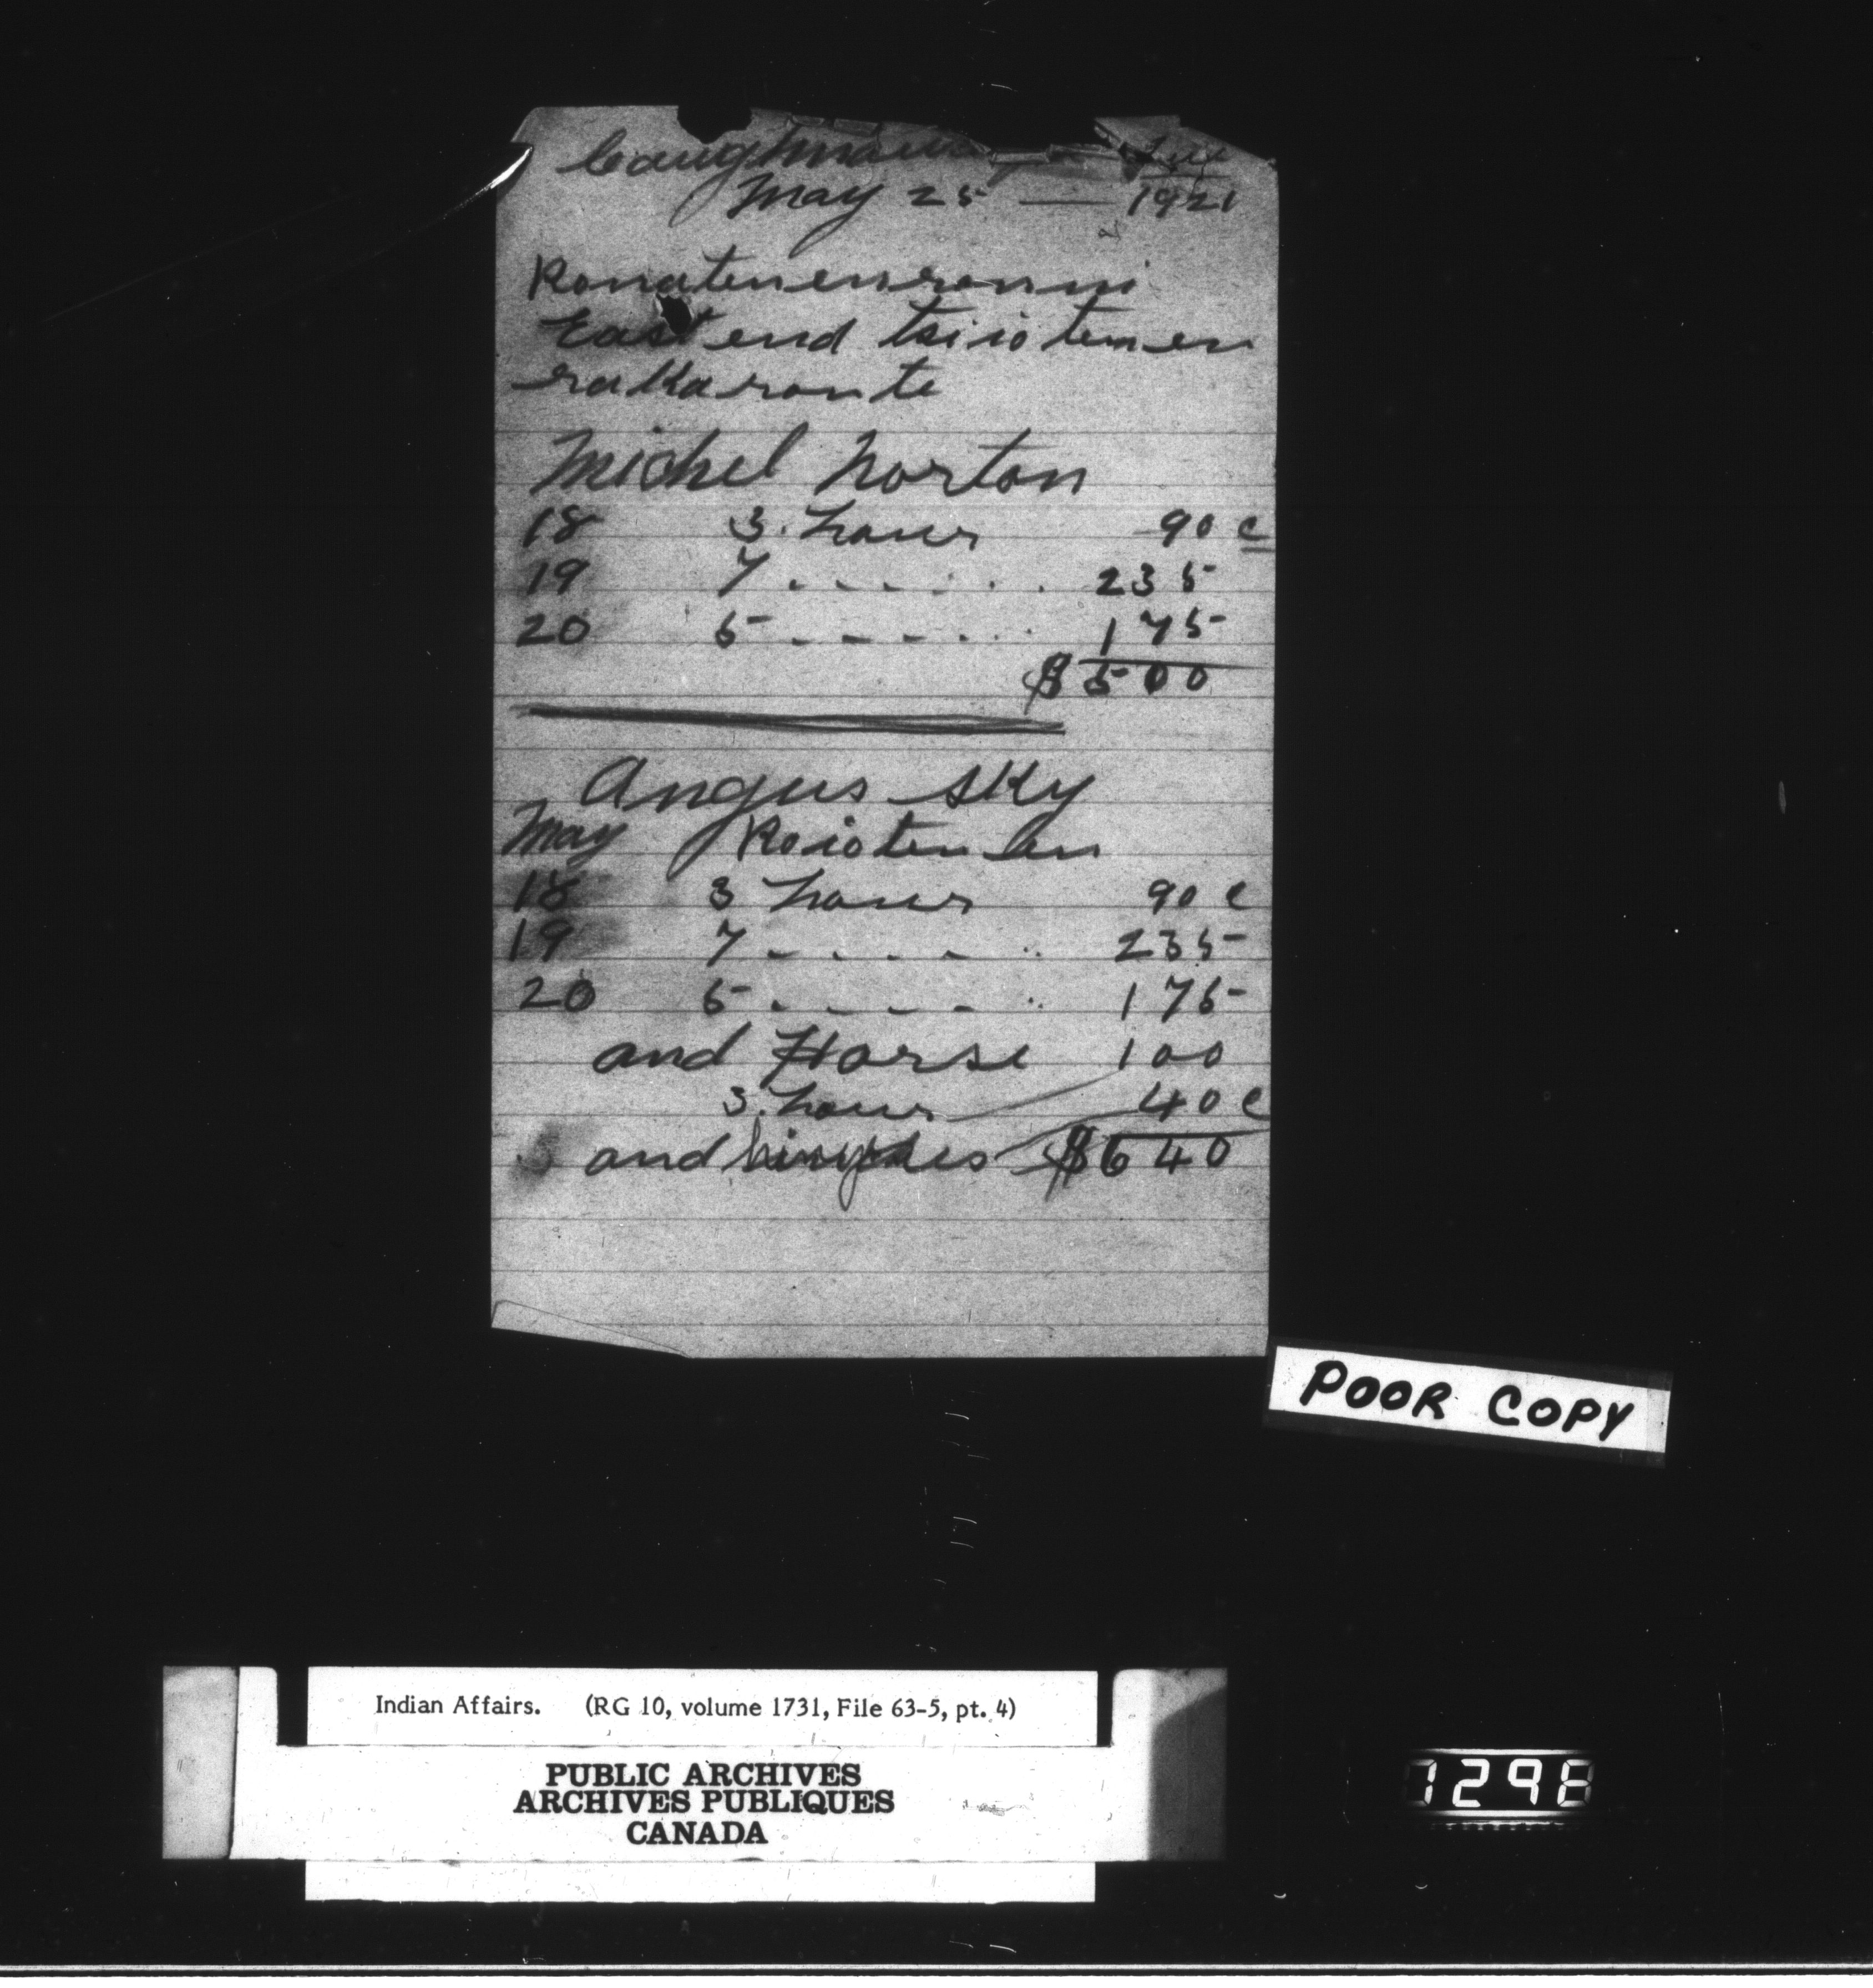 Caughnawa
May 25 — 1921
Ronatenenronni
East end tsiiotenen
rakaronte
Michel Norton
18 3. hours 90 c
19 7 - - - - . . 235
20 5 - - - - . . . 175
$ 500
Angus Sky
May Roioten en
18 3 hours 90 c
19 7 - - - - - .. 235
20 5 - - - - - .. 175
and Horse 100
3. hours 40 c
and $640
POOR COPY
Indian Affairs. (RG 10, volume 1731, File 63-5, pt. 4)
PUBLIC ARCHIVES
ARCHIVES PUBLIQUES
CANADA
7298